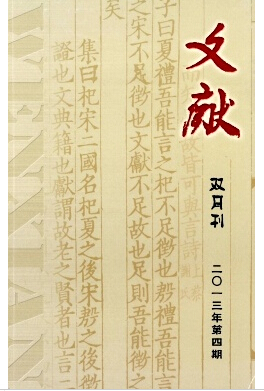 文獻
双月刊
二〇一三年第四期
故皆可與言詩
子曰夏禮吾能言之杞不足徵也殷禮吾能言
之宋不足徵也文獻不足故也足則吾能徵之
矣
集曰杞宋二國名杞夏之後宋殷之後徵
證也文典籍也獻謂故老之賢者也言二